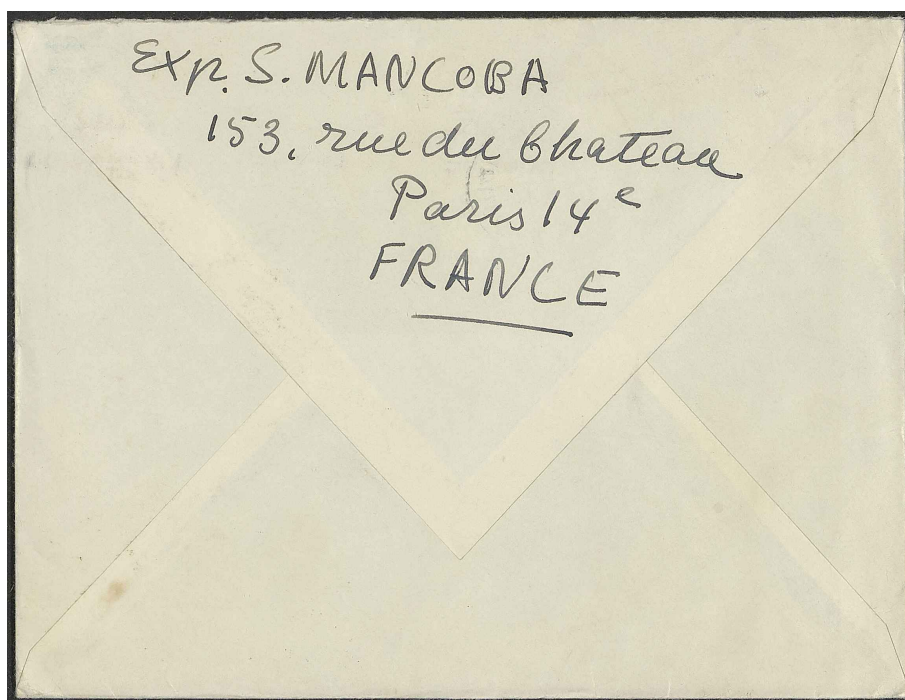 Exp. S. MANCOBA
153, rue du Chateau
Paris 14e
FRANCE